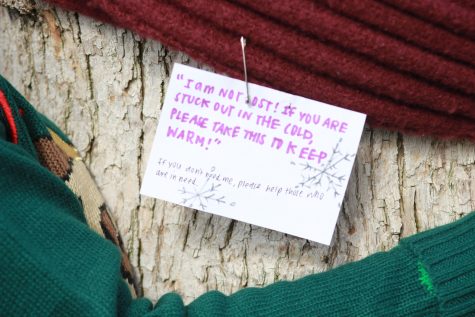 "I am NOT LOST! IF YOU ARE
STUCK OUT IN THE COLD,
PLEASE TAKE THIS TO KEEP
WARM!"
If you don't need me, please help those who
are in need.